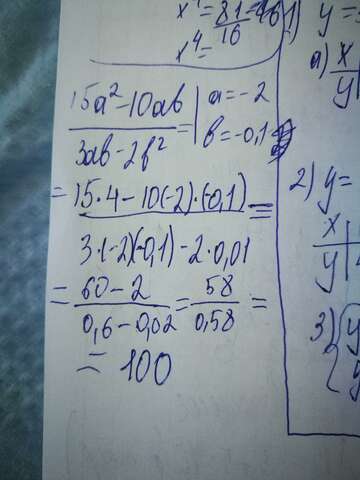 x⁴ = 81/16
x⁴ =
15a² - 10ab / 3ab - 2b² = | a = -2
b = -0,1
= 15·4 - 10(-2)·(-0,1) / 3·(-2)(-0,1) - 2·0,01 =
= 60 - 2 / 0,6 - 0,02 = 58 / 0,58 =
= 100
1) y =
a) x
y
2) y =
x
y
3) { y
y